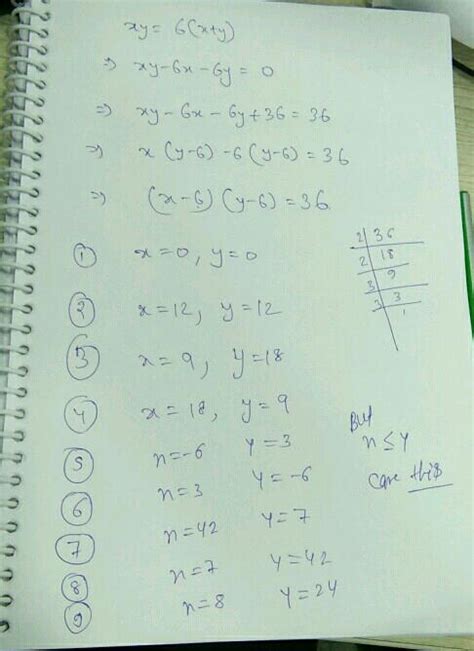 xy = 6(x+y)
⇒ xy-6x-6y = 0
⇒ xy-6x-6y+36 = 36
⇒ x(y-6)-6(y-6) = 36
⇒ (x-6)(y-6) = 36
① x=0, y=0
② x=12, y=12
③ x=9, y=18
④ x=18, y=9
⑤ x=-6 y=3
⑥ x=3 y=-6
⑦ x=42 y=7
⑧ x=7 y=42
⑨ x=8 y=24
2 | 36
2 | 18
3 | 9
3 | 3
1
But
x ≤ y
this